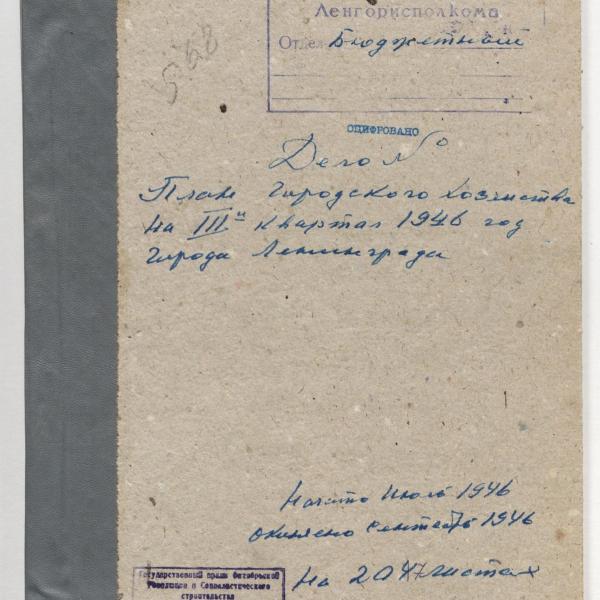 568
Ленгорисполкома
Отдел Бюджетный
ОЦИФРОВАНО
Дело №
План городского хозяйства
на IIIй квартал 1946 год
города Ленинграда
Начато Июль 1946
окончено сентябрь 1946
на 204 листах
Государственный архив Октябрьской
Революции и Социалистического
строительства